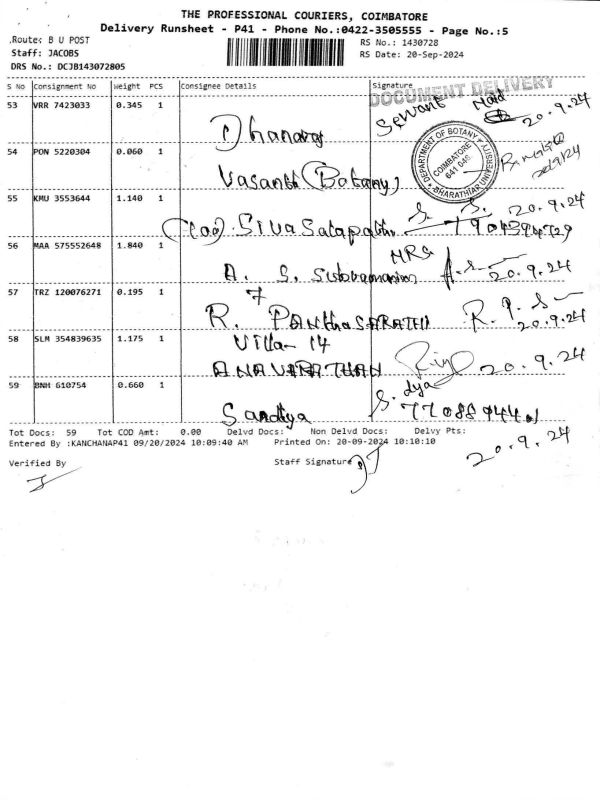 THE PROFESSIONAL COURIERS, COIMBATORE
Delivery Runsheet - P41 - Phone No.:0422-3505555 - Page No.:5
.Route: B U POST
RS No.: 1430728
Staff: JACOBS
RS Date: 20-Sep-2024
DRS No.: DCJB143072805
S No Consignment No Weight PCS Consignee Details Signature
DOCUMENT DELIVERY
53 VRR 7423033 0.345 1
Dhanaraj
Servant Maid
20.9.24
DEPARTMENT OF BOTANY
COIMBATORE
641 046
BHARATHIAR UNIVERSITY
54 PON 5220304 0.060 1
Vasanth (Botany)
55 KMU 3553644 1.140 1
S. S. 20.9.24
56 MAA 575552648 1.840 1
MRS
A. S. Subramaniam A.S. 20.9.24
57 TRZ 120076271 0.195 1
7
R. PANthaSARATHI R. P. S 20.9.24
58 SLM 354839635 1.175 1
Villa-14
ANAVARATHAN 20.9.24
59 BNH G10754 0.660 1
Sandhya S. dya
20.9.24
Tot Docs: 59 Tot COD Amt: 0.00 Delvd Docs: Non Delvd Docs: Delvy Pts:
Entered By :KANCHANAP41 09/20/2024 10:09:40 AM Printed On: 20-09-2024 10:10:10
Verified By
Staff Signature